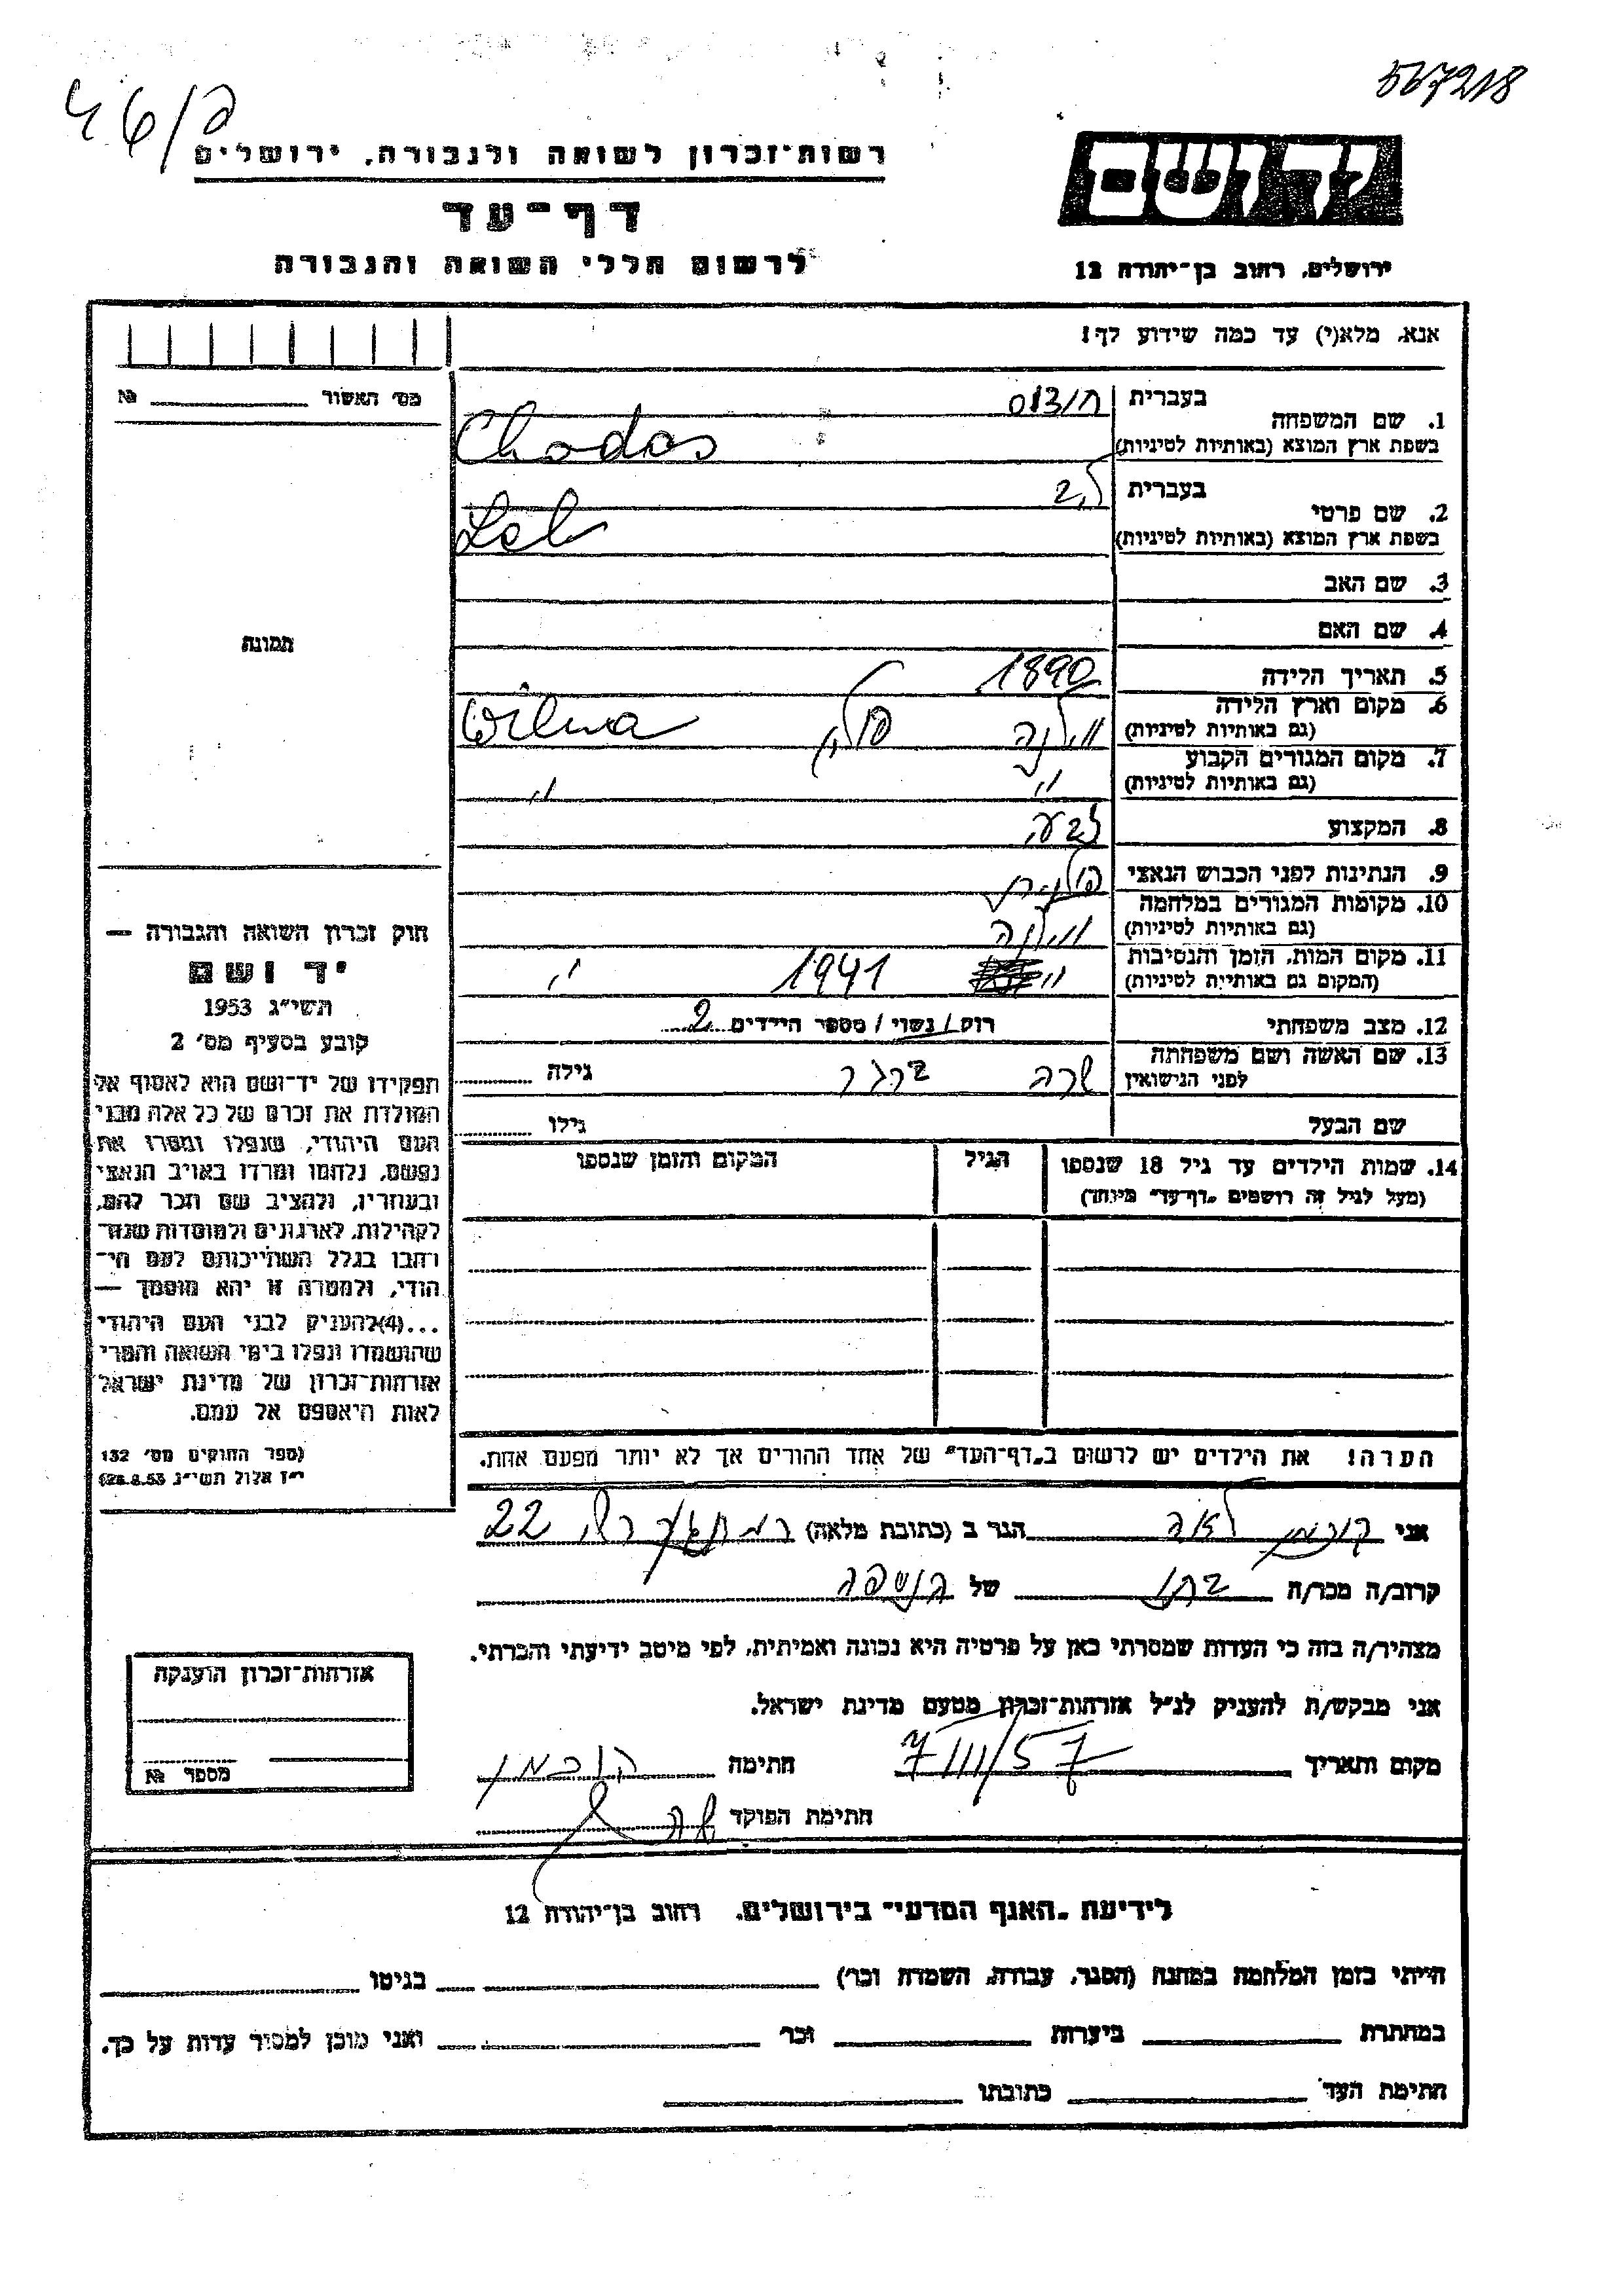 567218
46/ק
יד ושם
ירושלים, רחוב בן־יהודה 12
רשות־זכרון לשואה ולגבורה, ירושלים
דף־עד
לרשום חללי השואה והגבורה
אנא, מלא(י) עד כמה שידוע לך!
1. שם המשפחה
בעברית
בשפת ארץ המוצא (באותיות לטיניות)
Chodos
2. שם פרטי
בעברית ליב
בשפת ארץ המוצא (באותיות לטיניות)
Leb
3. שם האב
4. שם האם
5. תאריך הלידה 1890
6. מקום וארץ הלידה (גם באותיות לטיניות) ווילנה פולין Wilna
7. מקום המגורים הקבוע (גם באותיות לטיניות) " "
8. המקצוע צבעי
9. הנתינות לפני הכבוש הנאצי פולנית
10. מקומות המגורים במלחמה (גם באותיות לטיניות) ווילנה
11. מקום המות, הזמן והנסיבות (המקום גם באותיות לטיניות) " 1941 "
12. מצב משפחתי רוק/נשוי/מספר הילדים 2
13. שם האשה ושם משפחתה לפני הנישואין שרה ברגר גילה
שם הבעל גילו
14. שמות הילדים עד גיל 18 שנספו
(מעל לגיל זה רושמים „דף־עד" מיוחד)
הגיל
המקום והזמן שנספו
הערה! את הילדים יש לרשום ב„דף־העד" של אחד ההורים אך לא יותר מפעם אחת.
מס' האשור №
תמונה
חוק זכרון השואה והגבורה —
יד ושם
תשי"ג 1953
קובע בסעיף מס' 2
תפקידו של יד־ושם הוא לאסוף אל
המולדת את זכרם של כל אלה מבני
העם היהודי, שנפלו ומסרו את
נפשם, נלחמו ומרדו באויב הנאצי
ובעוזריו, ולהציב שם וזכר להם,
לקהילות, לארגונים ולמוסדות שנח־
רבו בגלל השתייכותם לעם הי־
הודי, ולמטרה זו יהא מוסמך —
...(4) להעניק לבני העם היהודי
שהושמדו ונפלו בימי השואה והמרי
אזרחות־זכרון של מדינת ישראל
לאות היאספם אל עמם.
(ספר החוקים מס' 132
י"ז אלול תשי"ג 28.8.53)
אני לאה הגר ב (כתובת מלאה) 22
קרוב/ה מכר/ה בתו של הנספה
מצהיר/ה בזה כי העדות שמסרתי כאן על פרטיה היא נכונה ואמיתית, לפי מיטב ידיעתי והכרתי.
אני מבקש/ת להעניק לנ"ל אזרחות־זכרון מטעם מדינת ישראל.
מקום ותאריך 7/III/57 חתימה
חתימת הפוקד
אזרחות־זכרון הוענקה
מספר №
לידיעת „האגף המדעי" בירושלים, רחוב בן־יהודה 12
הייתי בזמן המלחמה במחנה (הסגר, עבודה, השמדה וכר') בגיטו
במחתרת ביערות וכר ואני מוכן למסור עדות על כך.
חתימת העד כתובתו